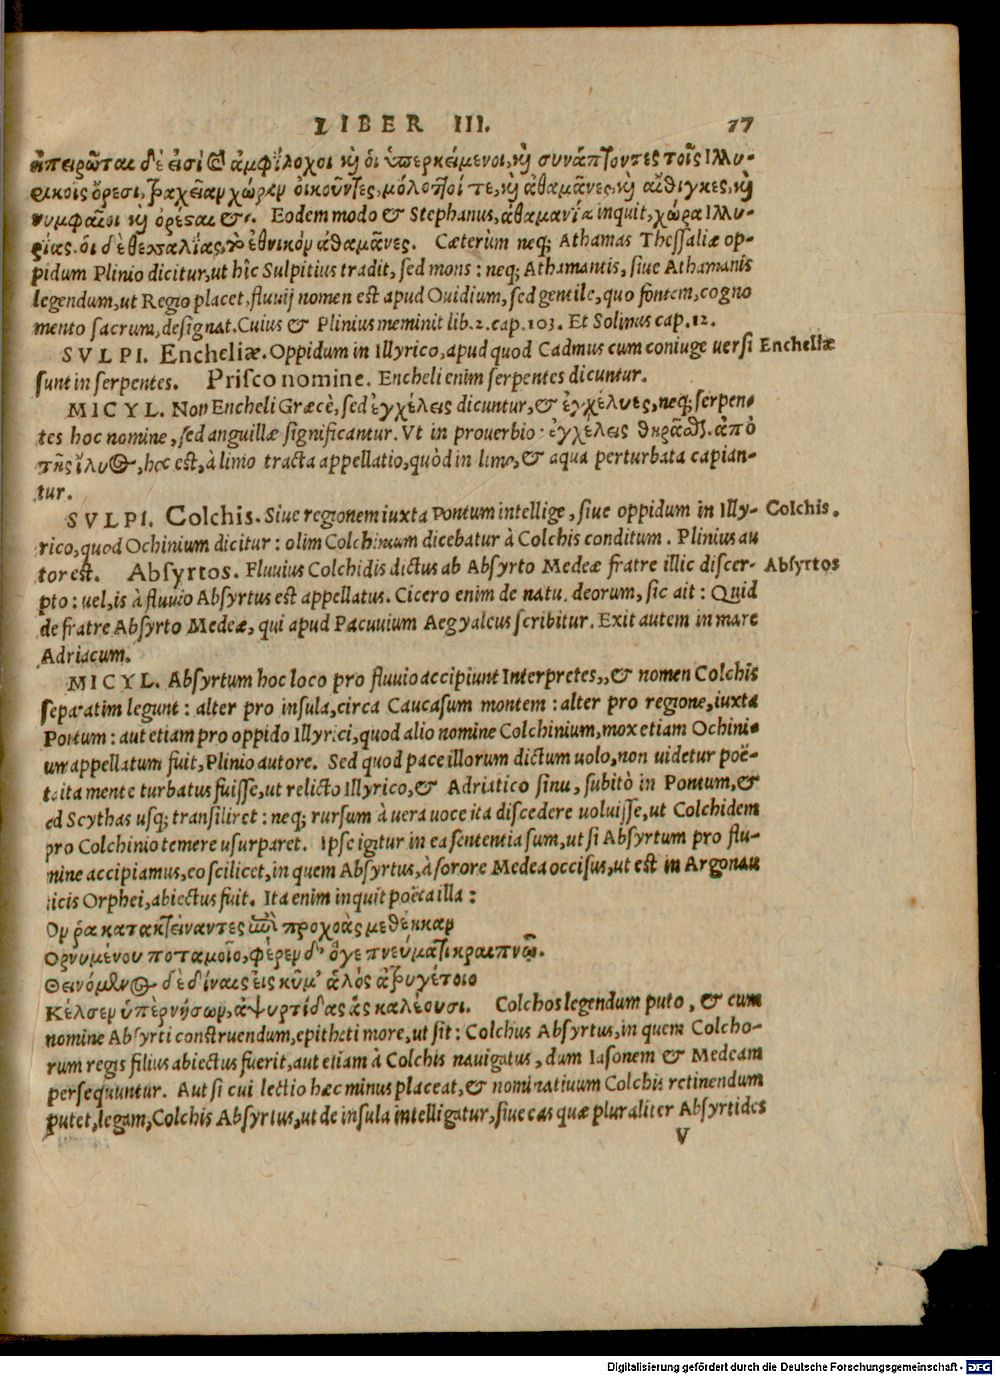 LIBER III. 77
ἠπειρῶται δέ εἰσί καὶ ἀμφίλοχοι καὶ οἱ ὑπερκείμενοι, καὶ συνάπτοντες τοῖς Ἰλλυ-
ρικοῖς ὄρεσι, τραχεῖαν χώραν οἰκοῦντες, μόλοττοί τε, καὶ ἀθαμᾶνες, καὶ αἴθικες, καὶ
τυμφαῖοι καὶ ὀρέςαι &c. Eodem modo & Stephanus, ἀθαμανία inquit, χώρα Ἰλλυ-
ρίας. οἱ δὲ θεσσαλίας, τὸ ἐθνικὸν ἀθαμᾶνες. Cæterùm neq; Athamas Thessaliæ op-
pidum Plinio dicitur, ut hîc Sulpitius tradit, sed mons: neq; Athamantis, siue Athamanis
legendum, ut Regio placet, fluuij nomen est apud Ouidium, sed gentile, quo fontem, cogno
mento sacrum, designat. Cuius & Plinius meminit lib. 2. cap. 103. Et Solinus cap. 12.
SVLPI. Encheliæ. Oppidum in Illyrico, apud quod Cadmus cum coniuge uersi Encheliæ
sunt in serpentes. Prisco nomine. Encheli enim serpentes dicuntur.
MICYL. Non Encheli Græcè, sed ἐγχέλεις dicuntur, & ἐγχέλυες, neq; serpen-
tes hoc nomine, sed anguillæ significantur. Vt in prouerbio: ἐγχέλεις θηρᾶσθαι. ἀπὸ
τῆς ἰλύος, hoc est, à limo tracta appellatio, quòd in limo, & aqua perturbata capian-
tur.
SVLPI. Colchis. Siue regionem iuxta Pontum intellige, siue oppidum in Illy- Colchis.
rico, quod Ochinium dicitur: olim Colchinium dicebatur à Colchis conditum. Plinius au
tor est. Absyrtos. Fluuius Colchidis dictus ab Absyrto Medeæ fratre illic discer- Absyrtos
pto: uel, is à fluuio Absyrtus est appellatus. Cicero enim de natu. deorum, sic ait: Quid
de fratre Absyrto Medeæ, qui apud Pacuuium Aegyaleus scribitur. Exit autem in mare
Adriacum.
MICYL. Absyrtum hoc loco pro fluuio accipiunt Interpretes,, & nomen Colchis
separatim legunt: alter pro insula, circa Caucasum montem: alter pro regione, iuxta
Pontum: aut etiam pro oppido Illyrici, quod alio nomine Colchinium, mox etiam Ochini-
um appellatum fuit, Plinio autore. Sed quod pace illorum dictum uolo, non uidetur poë-
ta ita mente turbatus fuisse, ut relicto Illyrico, & Adriatico sinu, subitò in Pontum, &
ad Scythas usq; transiliret: neq; rursum à uera uoce ita discedere uoluisse, ut Colchidem
pro Colchinio temere usurparet. Ipse igitur in ea sententia sum, ut si Absyrtum pro flu-
mine accipiamus, eo scilicet, in quem Absyrtus, à sorore Medea occisus, ut est in Argonau
ticis Orphei, abiectus fuit. Ita enim inquit poëta illa:
Ον ῥα κατακτείναντες ἐπὶ προχοὰς μεθέηκαν
Ορνυμένου ποταμοῖο, φέρεν δ' ὅγε πνεύματι κραιπνῷ.
Θεινόμενος δὲ δίναις εἰς κῦμ' ἁλὸς ἀτρυγέτοιο
Κέλσεν ὑπὲρ νήσων, ἀψυρτίδας ἃς καλέουσι. Colchos legendum puto, & cum
nomine Absyrti construendum, epitheti more, ut sit: Colchus Absyrtus, in quem Colcho-
rum regis filius abiectus fuerit, aut etiam à Colchis nauigatus, dum Iasonem & Medeam
persequuntur. Aut si cui lectio hæc minus placeat, & nominatiuum Colchis retinendum
putet, legam, Colchis Absyrtus, ut de insula intelligatur, siue eas quæ pluraliter Absyrtides
V
Digitalisierung gefördert durch die Deutsche Forschungsgemeinschaft - DFG